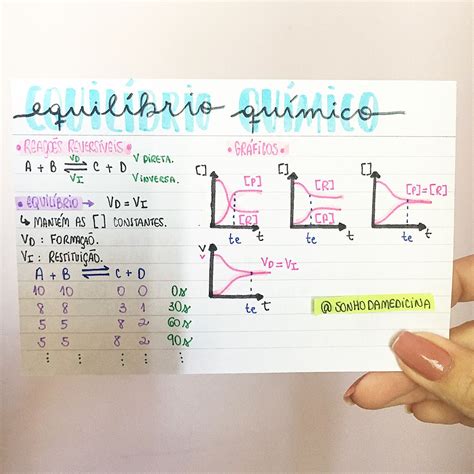 equilíbrio químico
• REAÇÕES REVERSÍVEIS •
A + B ⇌ C + D
VD
VI
V DIRETA.
V INVERSA.
• EQUILÍBRIO → VD = VI
↳ MANTÉM AS [ ] CONSTANTES.
VD : FORMAÇÃO.
VI : RESTITUIÇÃO.
A + B ⇌ C + D
10 10 0 0 0s
8 8 3 1 30s
5 5 8 2 60s
5 5 8 2 90s
⋮ ⋮ ⋮ ⋮ ⋮
• GRÁFICOS •
[ ] [P] [R] te t
[ ] [R] [P] te t
[ ] [P]=[R] te t
V VD = VI te t
@SONHODAMEDICINA